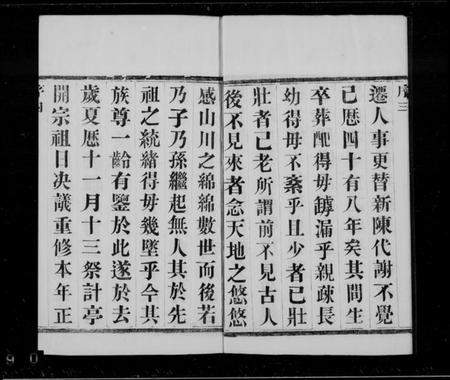 序 三
遷人事更替新陳代謝不覺
已歷四十有八年矣其間生
卒葬配得毋罅漏乎親疎長
幼得毋不紊乎且少者已壯
壯者已老所謂前不見古人
後不見來者念天地之悠悠
感山川之綿綿數世而後若
乃子乃孫繼起無人其於先
祖之統緒得毋幾墜乎今其
族尊一齡有鑒於此遂於去
歲夏曆十一月十三祭計亭
開宗祖日决議重修本年正
序 四
90